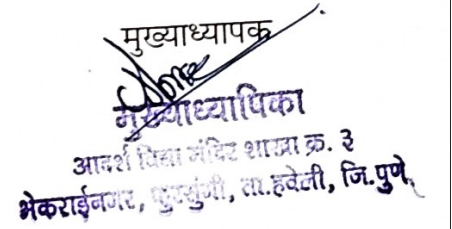 मुख्याध्यापक
मुख्याध्यापिका
आदर्श विद्या मंदिर शाखा क्र. ३
भेकराईनगर, फुरसुंगी, ता.हवेली, जि.पुणे.